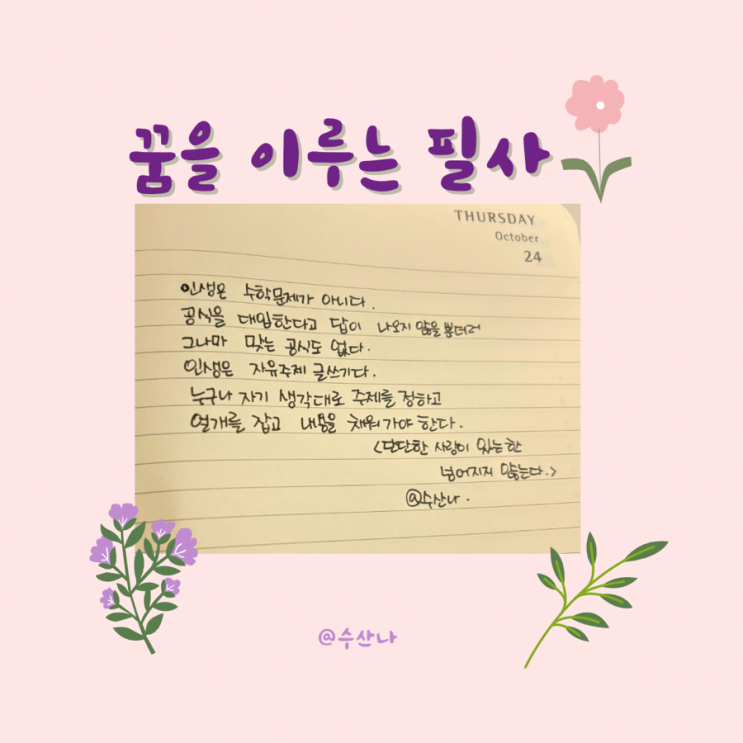 꿈을 이루는 필사
THURSDAY
October
24
인생은 수학문제가 아니다.
공식을 대입한다고 답이 나오지 않을 뿐더러
그나마 맞는 공식도 없다.
인생은 자유주제 글쓰기다.
누구나 자기 생각대로 주제를 정하고
얼개를 잡고 내용을 채워가야 한다.
<단단한 사랑이 있는 한
넘어지지 않는다.>
@수산나.
@수산나